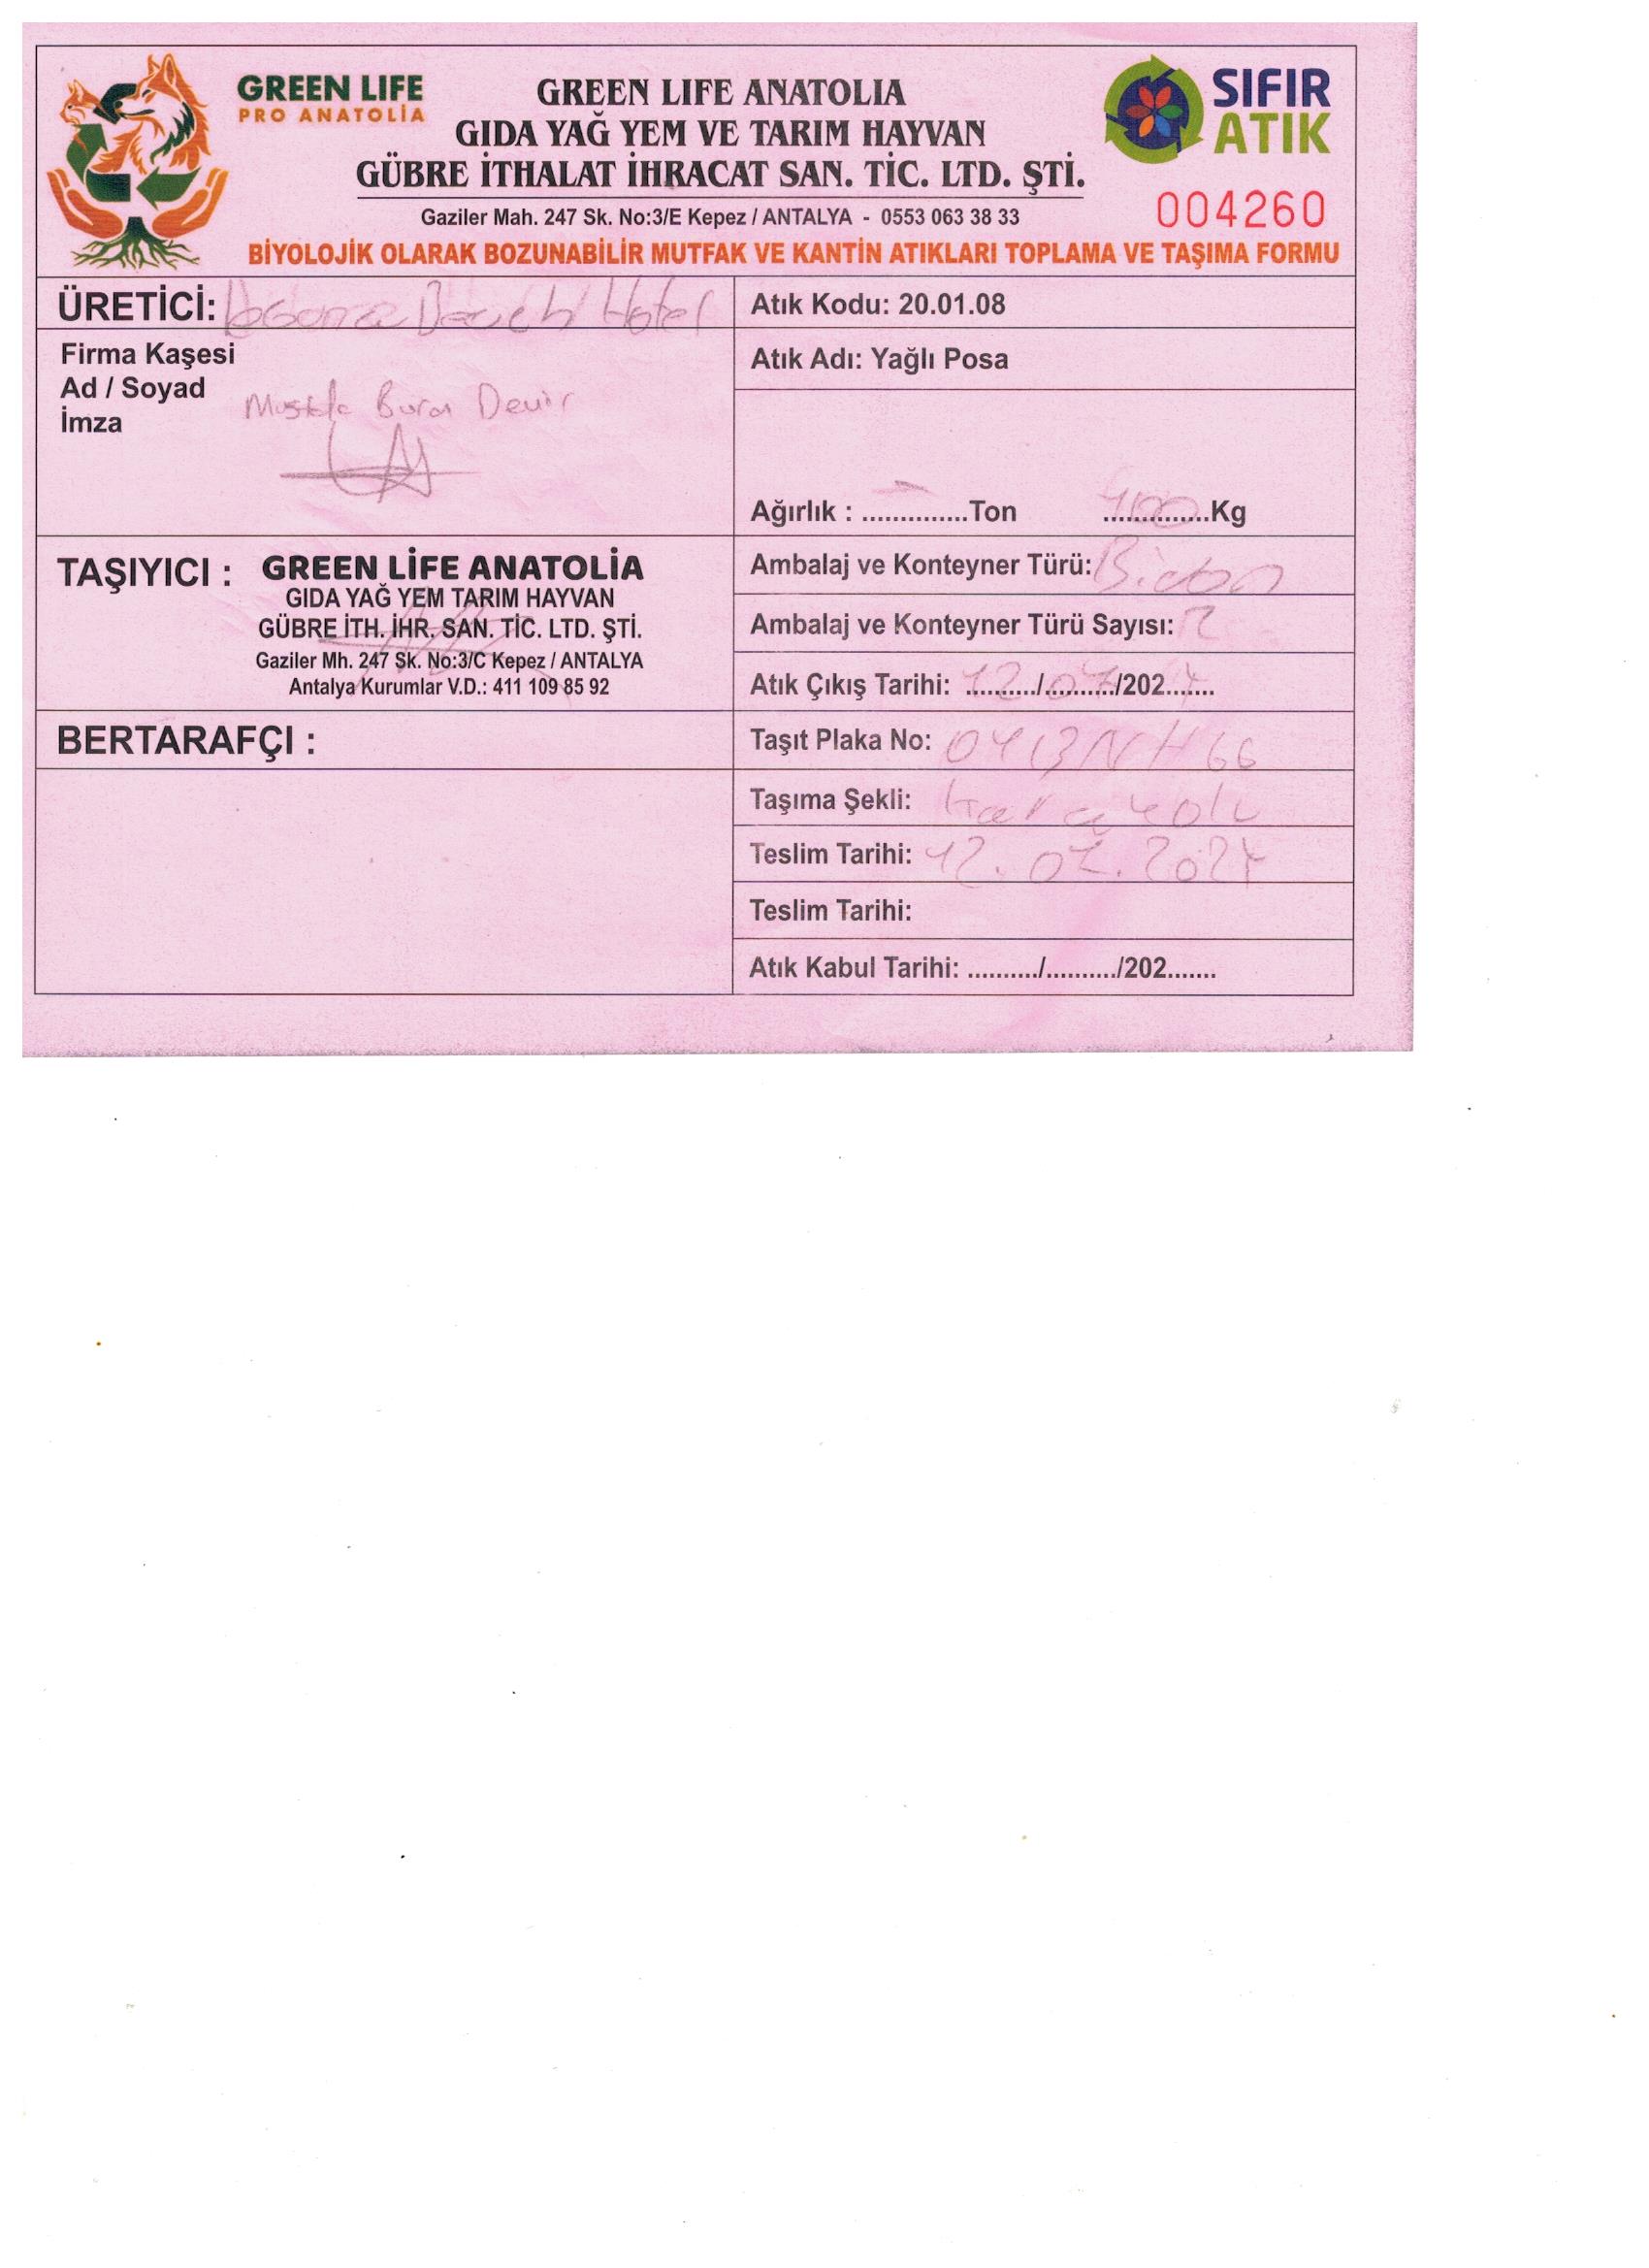 GREEN LIFE
PRO ANATOLİA
GREEN LIFE ANATOLIA
GIDA YAĞ YEM VE TARIM HAYVAN
GÜBRE İTHALAT İHRACAT SAN. TİC. LTD. ŞTİ.
Gaziler Mah. 247 Sk. No:3/E Kepez / ANTALYA - 0553 063 38 33
SIFIR
ATIK
004260
BİYOLOJİK OLARAK BOZUNABİLİR MUTFAK VE KANTİN ATIKLARI TOPLAMA VE TAŞIMA FORMU
ÜRETİCİ: Beach Hotel
Firma Kaşesi
Ad / Soyad
İmza
Atık Kodu: 20.01.08
Atık Adı: Yağlı Posa
Ağırlık : ..............Ton ..............Kg
TAŞIYICI : GREEN LİFE ANATOLİA
GIDA YAĞ YEM TARIM HAYVAN
GÜBRE İTH. İHR. SAN. TİC. LTD. ŞTİ.
Gaziler Mh. 247 Sk. No:3/C Kepez / ANTALYA
Antalya Kurumlar V.D.: 411 109 85 92
Ambalaj ve Konteyner Türü: Bidon
Ambalaj ve Konteyner Türü Sayısı:
Atık Çıkış Tarihi: 12/07/202
BERTARAFÇI :
Taşıt Plaka No:
Taşıma Şekli: karayolu
Teslim Tarihi: 12.07.2024
Teslim Tarihi:
Atık Kabul Tarihi: ........../........../202.......